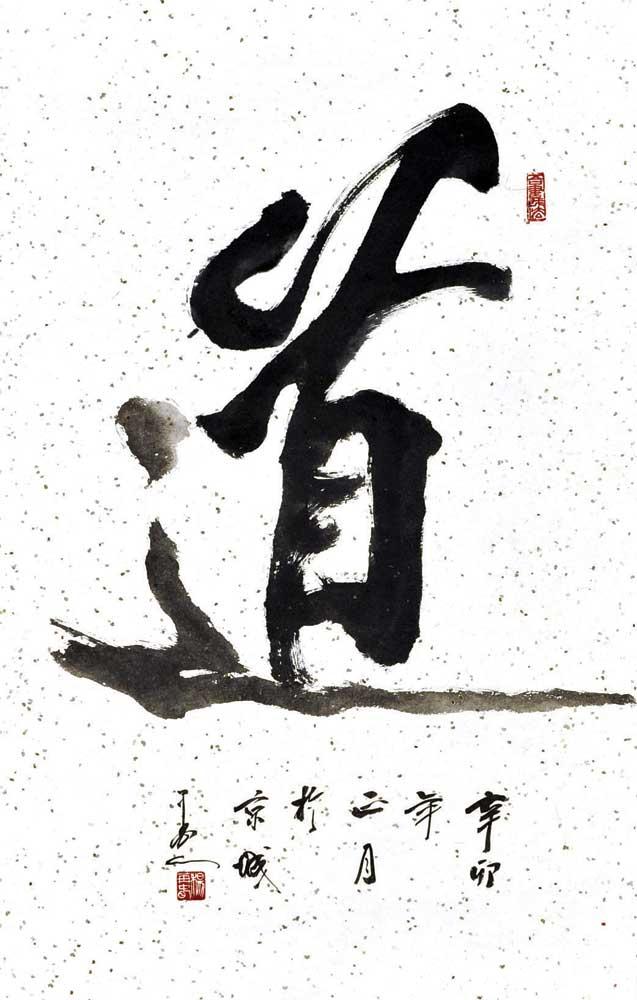 道
辛卯
年
正月
於
京城